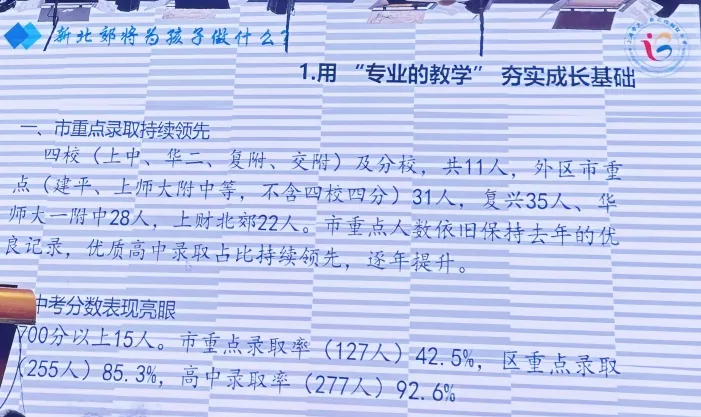 新北郊将为孩子做什么?
1.用“专业的教学”夯实成长基础
一、市重点录取持续领先
四校（上中、华二、复附、交附）及分校，共11人，外区市重
点（建平、上师大附中等，不含四校四分）31人，复兴35人、华
师大一附中28人，上财北郊22人。市重点人数依旧保持去年的优
良记录，优质高中录取占比持续领先，逐年提升。
中考分数表现亮眼
700分以上15人。市重点录取率（127人）42.5%，区重点录取
（255人）85.3%，高中录取率（277人）92.6%